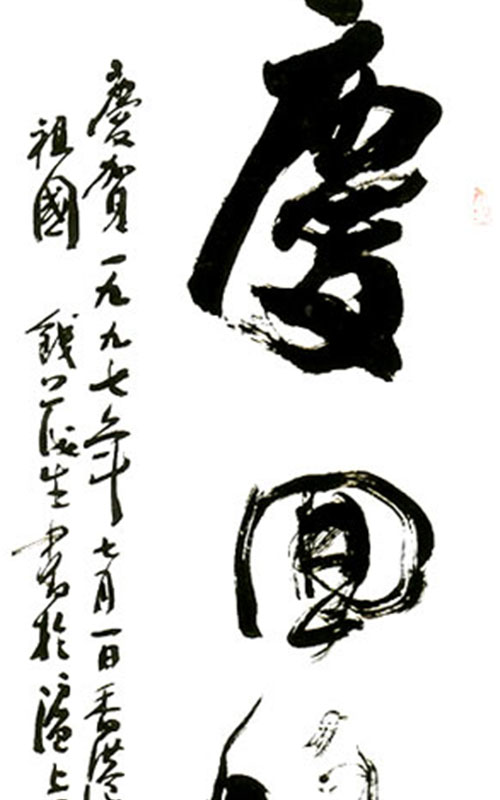 慶回
慶賀一九九七年七月一日香港
祖國 錢茂生書於滬上